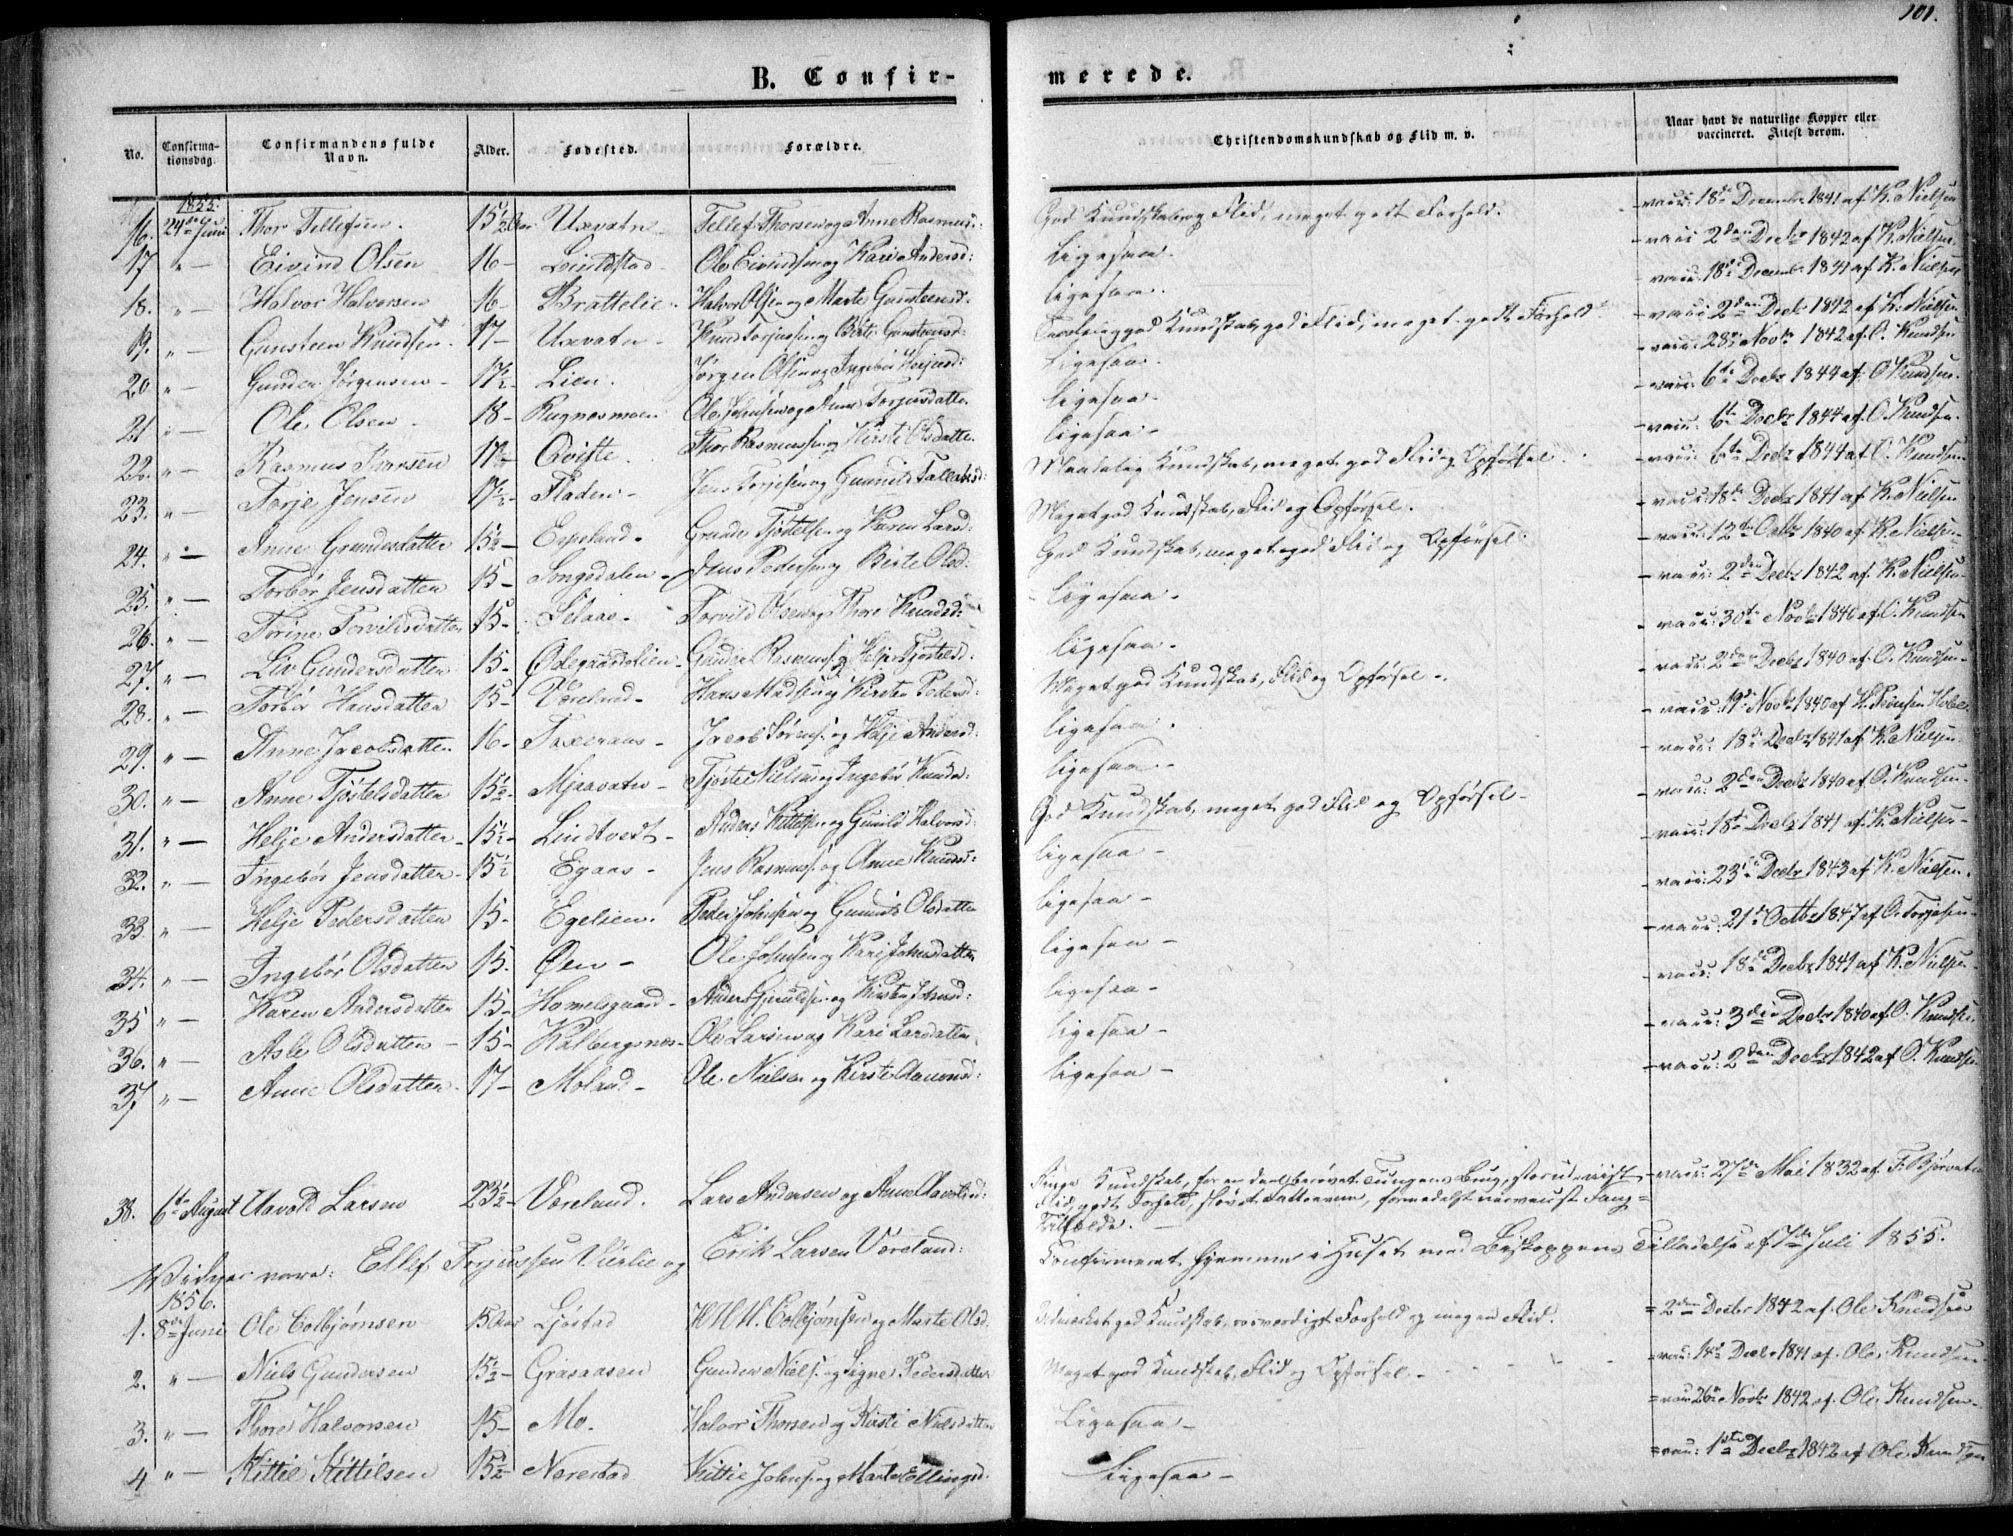 101.
B. Confir-
merede.
No.
Confirma-
tionsdag.
Confirmandens fulde
Navn.
Alder.
Fødested.
Forældre.
Christendomskundskab og Flid m. v.
Naar havt de naturlige Kopper eller
vaccineret. Attest derom.
1855.
16. 24de Juni Thor Tellefsen 15½ Aar Uxvatn Tellef Thorsen og Anne Rasmusd: God Kundskab og Flid, meget godt Forhold. vacc: 18de Decembr 1841 af K. Nielsen
17 " — Eivind Olsen 16 – Ole Eivindsen og Kari Andersd: Ligesaa. – vacc 2den Decbr 1842 af K. Nielsen
18. " — Halvor Halvorsen 16 – Brattelie Halvor Olsen og Marte Gunsteensd: Ligesaa. – vacc: 18de Decembr 1841 af K. Nielsen
19. " — Gunsteen Knudsen 17 – Uxvatn – Knud Torjussen og Berte Gunsteensd: god Kundskab, god Flid, meget godt Forhold. – vacc: 2den Decbr 1842 af K. Nielsen
20 " — Gunder Jørgensen – 17½ – Lien. Jørgen Olsen og Ingebor Ligesaa. – vacc: 28de Novbr 1842 af O. Knudsen
21 " — Ole Olsen – 18 – Rugnesmoen Ole Johnsen og Anne Torjusdatter Ligesaa. – vacc: 6te Decbr 1844 af O. Knudsen.
22. " — Rasmus Thorsen 17½ – Qviste Thor Rasmussen og Kirsti Olsdatter Ligesaa – – vacc: 6te Decbr 1844 af O. Knudsen.
23. " — Torje Jensen 17½ – Fladen – Jens Torjesen og Gunnild Tallaksd: Maadelig Kundskab, meget god Flid og Opførsel. – vacc: 6te Decbr 1844 af O. Knudsen
24. " — Anne Gundersdatter 15½ – Espeland – Gunder Tjøstelsen og Karen Larsd: Meget god Kundskab, Flid og Opførsel. – vacc: 18de Decbr 1841 af K. Nielsen
25. " — Torbør Jensdatter 15 – Songedalen – Jens Pedersen og Berte Olsd: God Kundskab, meget god Flid og Opførsel – vacc: 12te Octbr 1840 af K. Nielsen
26. " — Torine Torvildsdatter 15 – Selaas – Torvild Olsen og Thore Knudsd: Ligesaa – – vacc: 2den Decbr 1842 af K. Nielsen
27. " — Liv Gundersdatter 15 – Ødegaardslien – Gunder Rasmuss. og Helje Tjøstelsd: Ligesaa – – vacc: 30te Novbr 1840 af O. Knudsen
28. " — Torbør Hansdatter 15 – Voreland – Hans Madsen og Kirsten Pedersd: Meget god Kundskab, Flid og Opførsel – – vacc: 2den Decbr 1840 af O. Knudsen
29. " — Anne Jacobsdatter 16 – Taxeraas – Jacob Sørens. og Helje Andersd: Ligesaa. – vacc: 19de Novbr 1840 af
30. " — Anne Tjøstelsdatter 15½ – Mjaavatn – Tjøstel Nielsen og Ingebør Knudsd: Ligesaa – – vacc: 18de Decbr 1841 af K. Nielsen
31. " — Helje Andersdatter – 15½ – Lindtvedt – Anders Kittelsen og Gunild Halvorsd: God Kundskab, meget god Flid og Opførsel – – vacc: 2den Decbr 1840 af O. Knudsen
32. " — Ingebør Jensdatter – 15½ Egaas – Jens Rasmuss. og Anne Knudsd: Ligesaa – – vacc: 18de Decbr 1841 af K. Nielsen –
33. " — Helje Pedersdatter 15 – Egelien – Peder Johnsen og Gunild Olsdatter Ligesaa – – vacc: 23de Decbr 1843 af K. Nielsen.
34. " — Ingebør Olsdatter 15. Øen – Ole Johnsen og Kari Johnsdatter Ligesaa – – vacc: 21de Octbr 1847 af O. Torjesen –
35 " — Karen Andersdatter 15 – Homelsgaard – Anders og Kirsten Ligesaa – – vacc: 18de Decbr 1841 af K. Nielsen –
36. " — Asle Olsdatter – 15 – Kalbergsnes – Ole Larsen og Kari Larsdatter Ligesaa – – vacc: 3die Decbr 1840 af O. Knudsen
37 " — Anne Olsdatter – 17 – Moland – Ole Nielsen og Kirsti Ligesaa – – vacc: 2den Decbr 1842 af O. Knudsen
38. 6te August Aavold Larsen 23½ – Voreland. Lars Andersen og Anne Kundskab, for en deel berøvet Tungens Brug, – vacc: 27de Mai 1832 af F. Bjørvatn
Flid, godt Forhold,
Tilfælde. —
Confirmeret hjemme i Huset med Biskoppens Tilladelse af 7de Juli 1855.
Vidner vare: Ellef Torjussen Vierlie og Erik Larsen Voreland:
1856.
1. 8de Juni Ole Colbjørnsen 15 Aar Ljøstad Colbjørnsen og Marte Olsd. Udmærket god Kundskab, rosværdigt Forhold og megen Flid. = 2den Decbr 1842 af Ole Knudsen
2. " — Niels Gundersen 15½ – Grasaasen Gunder Niels. og Signe Pedersdatter Meget god Kundskab, Flid og Opførsel – = vacc: 14de Decbr 1841 af Ole Knudsen
3. " — Thore Halvorsen 15 – Mo. Halvor Thorsen og Kirsti Nielsdatter Ligesaa – = vacc 26de Novbr 1842 af Ole Knudsen –
4 " — Kittil Kittilsen 15½ – Nerestad Kittil Johns. og Marte Ellingsd. Ligesaa – = vacc: 1ste Decbr 1842 af Ole Knudsen